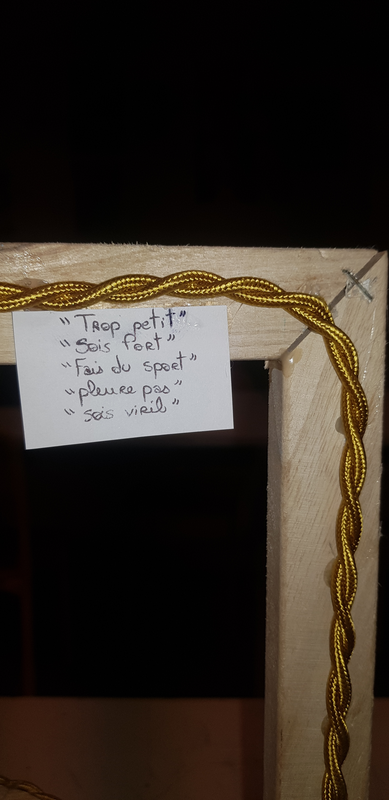 "Trop petit"
"Sois fort"
"Fais du sport"
"pleure pas"
"sois viril"